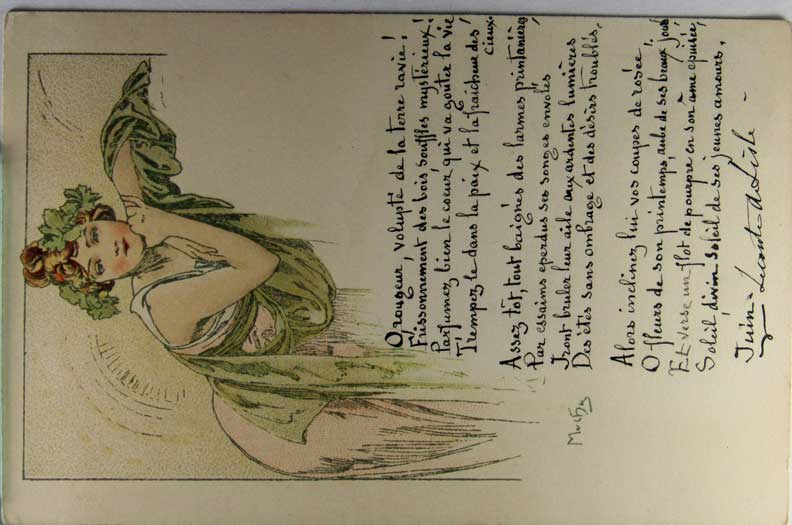 O rougeur, volupté de la terre ravie!
Frissonnement des bois, souffles mystérieux!
Parfumez bien le coeur qui va goûter la vie
Trempez le dans la paix et la fraîcheur des
cieux.
Assez tôt, tout baignés des larmes printanières
Par essaims éperdus ses songes envolés
Iront brûler leur aile aux ardentes lumières
Des étés sans ombrage et des désirs troublés.
Alors inclinez lui vos coupes de rosée
O fleurs de son printemps, aube de ses beaux jours
Et verse un flot de pourpre en son âme épuisée,
Soleil, divin Soleil de ses jeunes amours.
Juin - Leconte de Lisle -
Mucha